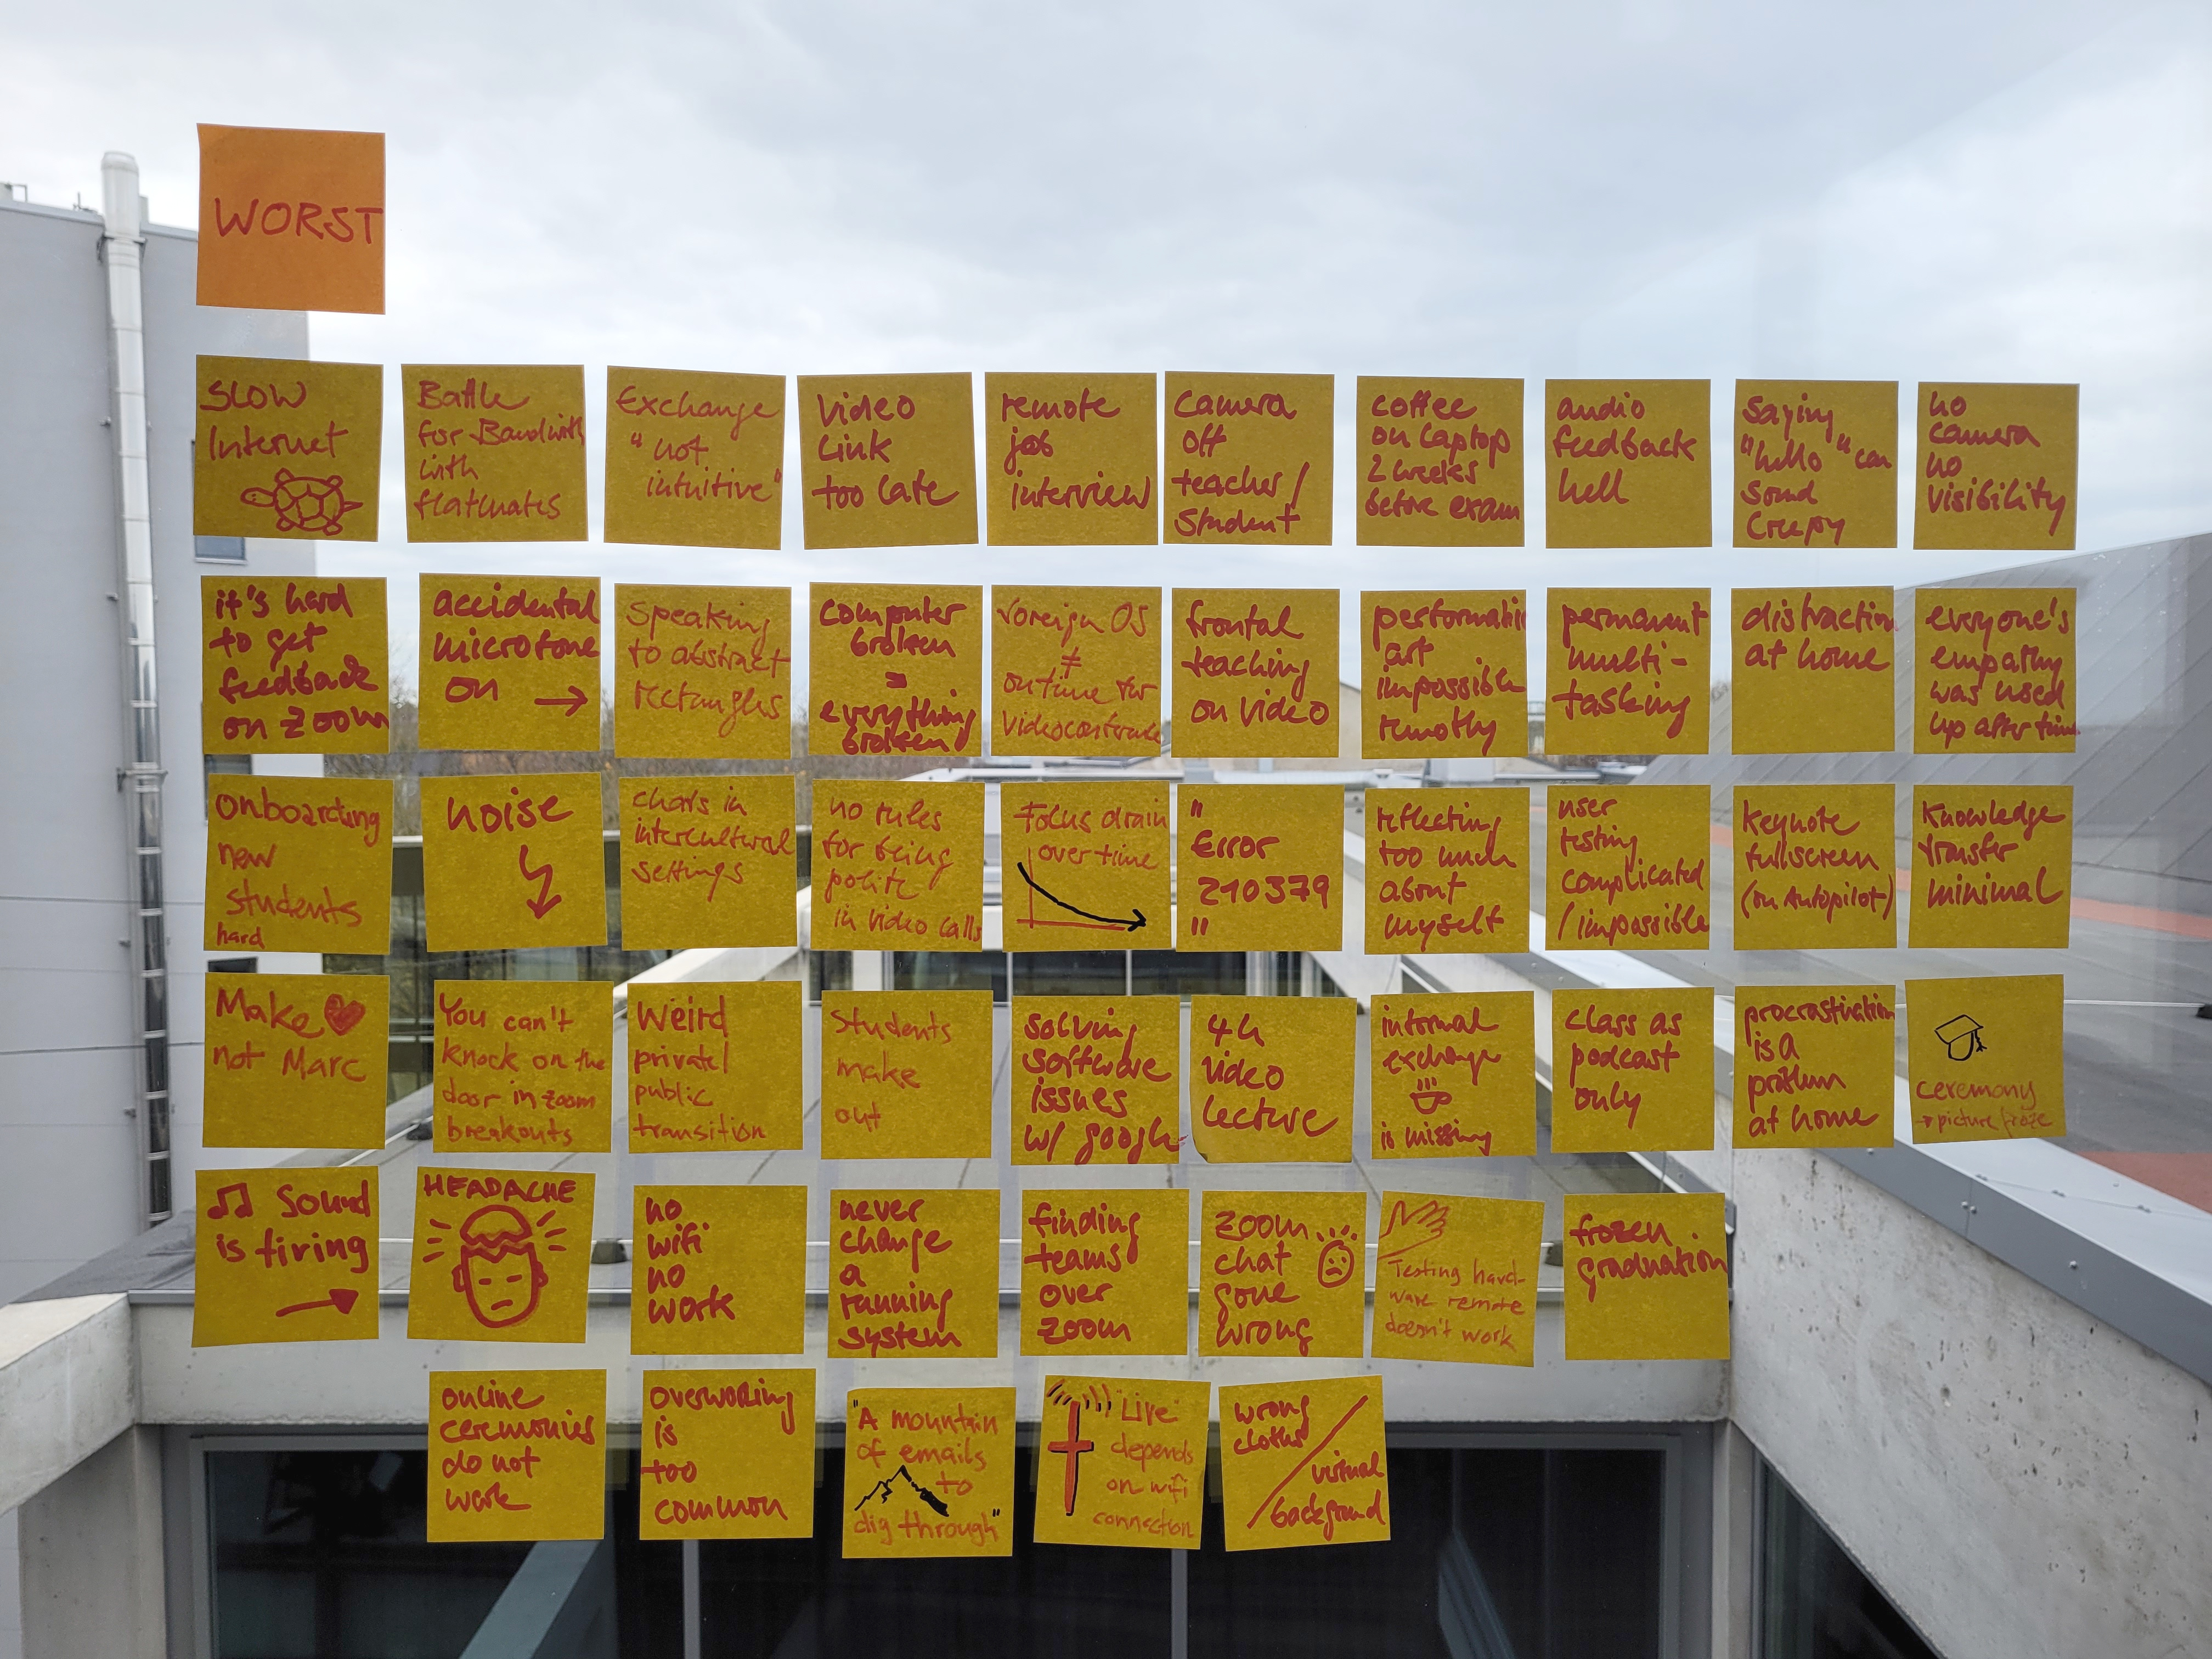 WORST
SLOW
Internet
Battle
for Bandwith
with
flatmates
Exchange
"not
intuitive"
video
link
too late
remote
job
interview
camera
off
teacher/
student
coffee
on laptop
2 weeks
before exam
audio
feedback
hell
saying
"hello" can
sound
creepy
no
camera
no
visibility
it's hard
to get
feedback
on zoom
accidental
microfone
on →
speaking
to abstract
rectangles
computer
broken
=
everything
broken
voreign OS
≠
on time for
frontal
teaching
on video
art
impossible
remotly
permanent
multi-
tasking
distraction
at home
everyone's
empathy
was used
up after time
onboarding
new
students
hard
noise
intercultural
settings
no rules
for being
polite
in video calls
Focus drain
over time
"
Error
210379
"
reflecting
too much
about
myself
user
testing
complicated
/impossible
keynote
fullscreen
(on Autopilot)
knowledge
transfer
minimal
Make ♥
not Marc
You can't
knock on the
door in zoom
breakouts
Weird
private/
public
transition
students
make
out
solving
software
issues
w/ google
4h
video
lecture
informal
exchange
is missing
class as
podcast
only
procrastination
is a
problem
at home
ceremony
→ picture froze
♫ Sound
is tiring
→
HEADACHE
no
wifi
no
work
never
change
a
running
system
finding
teams
over
zoom
zoom
chat
gone
wrong
Testing hard-
ware remote
doesn't work
frozen
graduation
online
ceremonies
do not
work
overworking
is
too
common
"A mountain
of emails
to
dig through"
Live
depends
on wifi
connection
wrong
cloths/
virtual
background